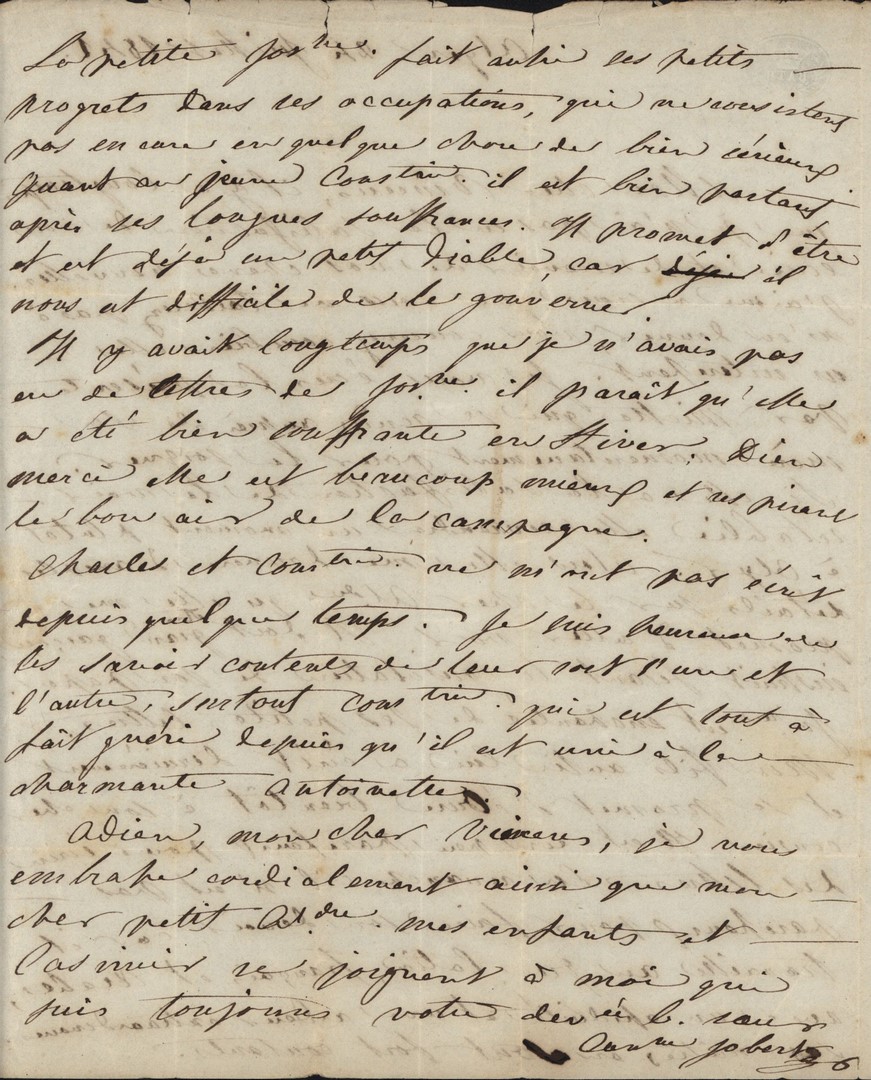 La petite Josne. fait aussi ses petits
progrets dans ses occupations, qui ne consistent
pas encore en quelque chose de bien sérieux
quant au jeune Constin. il est bien portant,
après ses longues souffrances. Il promet d'être
et est déjà un petit diable, car déjà il
nous est difficile de le gouverner
Il y avait longtemps que je n'avais pas
eu de lettres de Josne. il parait qu'elle
a été bien souffrante en Hiver; Dieu
merci elle est beaucoup mieux et respirent
le bon air de la campagne.
Charles et Constin. ne m'ont pas écrit
depuis quelque temps. Je suis heureuse de
les savoir contents de leur sort l'un et
l'autre, surtout Constin. qui est tout à
fait guéri depuis qu'il est uni à la
charmante Antoinette.
Adieu, mon cher, je vous
embrasse cordialement ainsi que mon
cher petit Adre. mes enfants et
Casimir se joignent à moi qui
suis toujours votre dévouée b. sœur
Jobert